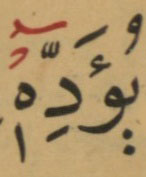 يُؤَدِّهٖٓ